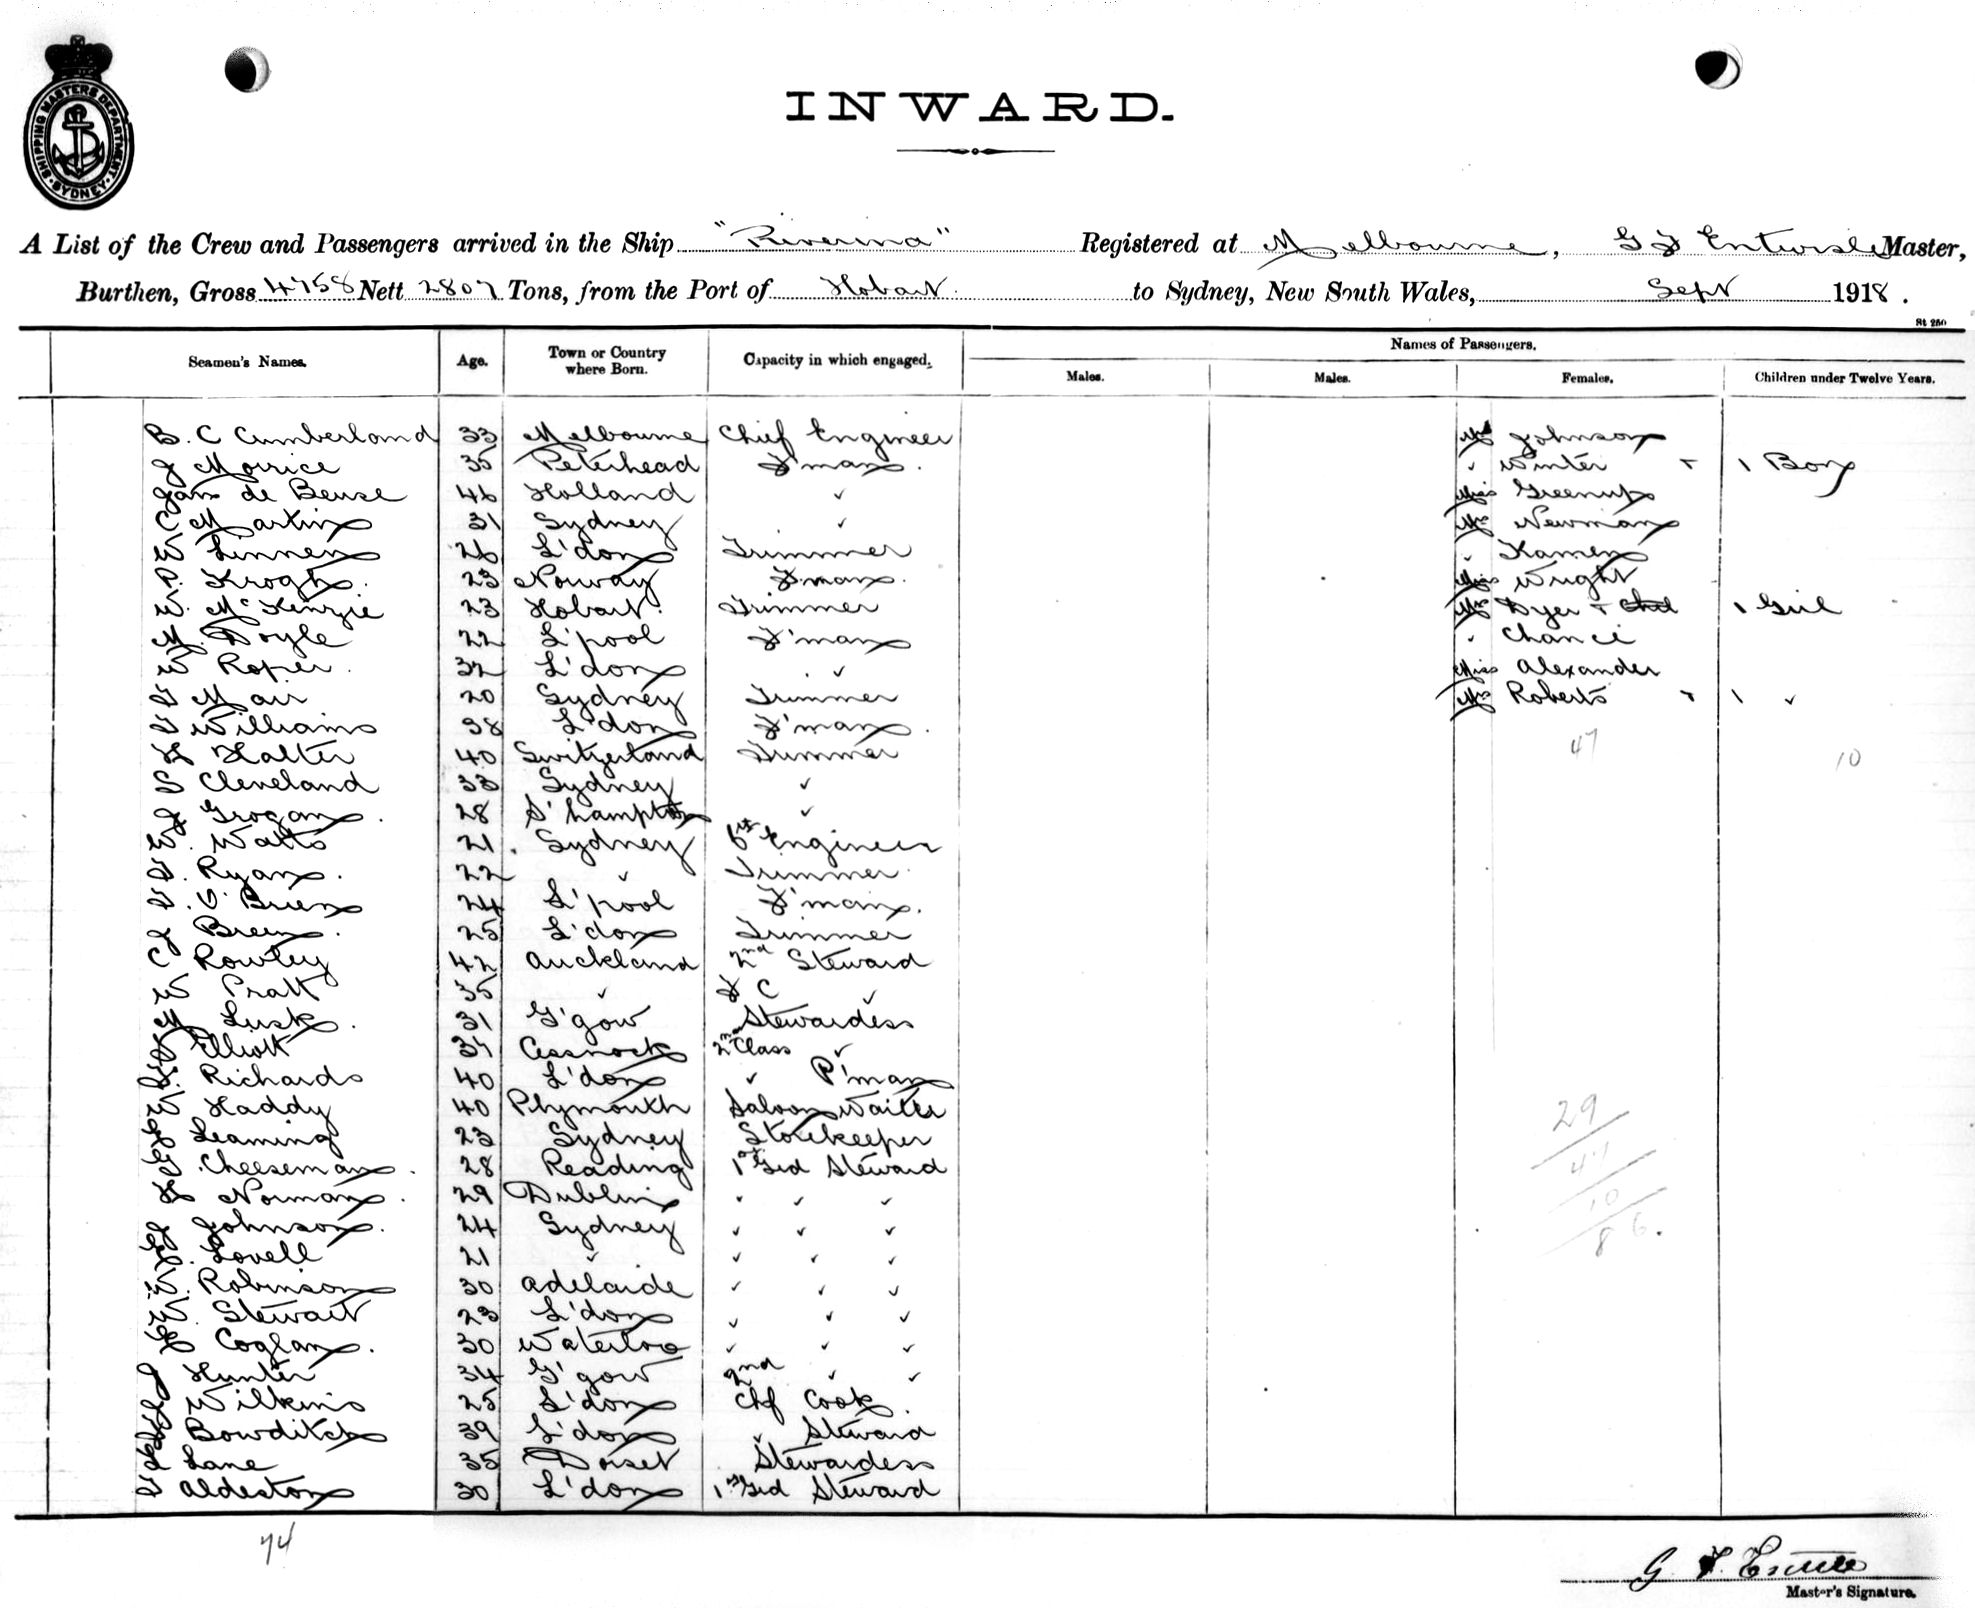 SHIPPING MASTERS DEPARTMENT. SYDNEY.
INWARD.
A List of the Crew and Passengers arrived in the Ship "Riverina" Registered at Melbourne, G F Entwisle Master,
Burthen, Gross 4758 Nett 2807 Tons, from the Port of Hobart. to Sydney, New South Wales, Sept 1918.
St 250
Seamen's Names. Age. Town or Country where Born. Capacity in which engaged. Names of Passengers.
Males. Males. Females. Children under Twelve Years.
B. C Cumberland 33 Melbourne Chief Engineer Mrs Johnson
J Morrice 35 Peterhead F'man. " Winter + 1 Boy
Jans de Beuse 46 Holland " Miss Greenup
C Martin 31 Sydney " Mrs Newman
W Linnen 26 L'don Trimmer " Kamen
P. Krogh. 23 Norway F'man. Miss Wright
W. McKenzie 23 Hobart. Trimmer Mrs Dyer + Chd 1 Girl
M Doyle 22 L'pool F'man " Chance
W Roper. 32 L'don " Miss Alexander
T Mair 20 Sydney Trimmer Mrs Roberts " 1 "
T Williams 38 L'don F'man.
H Halter 40 Switzerland Trimmer 47 10
S Cleveland 33 Sydney "
J Grogan. 28 S'hampton "
W. Watts 21. Sydney 6th Engineer
T. Ryan. 22 " Trimmer
T. O'Brien 24 L'pool F'man.
J Breen. 25 L'don Trimmer
C Rowley 42 Auckland 2nd Steward
W Pratt 35 " F C "
M Lusk. 31 G'gow Stewardess
Elliott Cessnock 2nd Class "
Richards 40 L'don " P'man
W Haddy 40 Plymouth Saloon Waiter
Leaming 23 Sydney Storekeeper 29
Cheeseman. 28 Reading 1st Grd Steward 47
H Norman. 29 Dublin " " " 10
J Johnson. 24 Sydney " " " 86.
Lovell 21 " " " "
W. Robinson 30 Adelaide " " "
W. Stewart 23 L'don " " "
Coglan. 30 Waterloo " " "
J Hunter 34 G'gow 2nd " "
Wilkins 25 L'don Chf Cook.
Bowditch 39 L'don " Steward
Lane 35 Dorset Stewardess
T Aldeston 30 L'don 1st Grd Steward
74
G F Entwisle
Master's Signature.